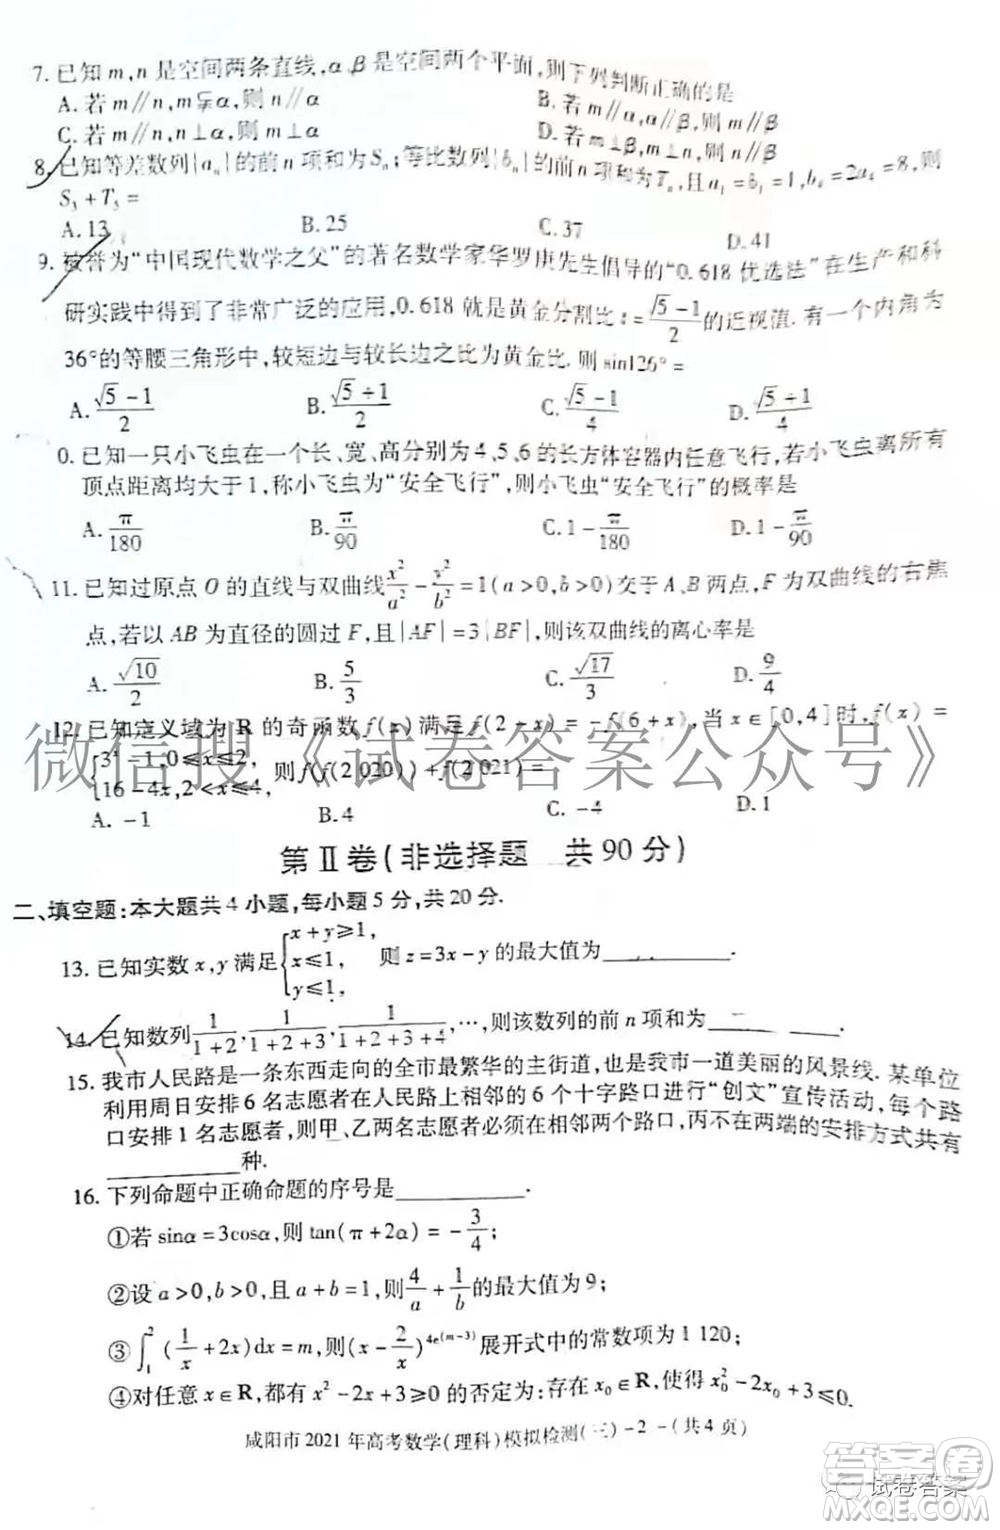 7. 已知 m,n 是空间两条直线,α,β 是空间两个平面,则下列判断正确的是
A. 若 m∥n,m⊊α,则 n∥α B. 若 m∥α,α∥β,则 m∥β
C. 若 m∥n,n⊥α,则 m⊥α D. 若 m⊥n,n∥β,则 m⊥β
8. 已知等差数列{aₙ}的前 n 项和为 Sₙ;等比数列{bₙ}的前 n 项和为 Tₙ,且 a₁=b₁=1,b₄=2a₄=8,则
S₃+T₅=
A. 13 B. 25 C. 37 D. 41
9. 被誉为“中国现代数学之父”的著名数学家华罗庚先生倡导的“0.618 优选法”在生产和科
研实践中得到了非常广泛的应用,0.618 就是黄金分割比 t=(√5-1)/2 的近视值.有一个内角为
36°的等腰三角形中,较短边与较长边之比为黄金比.则 sin126°=
A. (√5-1)/2 B. (√5+1)/2 C. (√5-1)/4 D. (√5+1)/4
0. 已知一只小飞虫在一个长、宽、高分别为 4,5,6 的长方体容器内任意飞行,若小飞虫离所有
顶点距离均大于 1,称小飞虫为“安全飞行”,则小飞虫“安全飞行”的概率是
A. π/180 B. π/90 C. 1-π/180 D. 1-π/90
11. 已知过原点 O 的直线与双曲线 x²/a²-y²/b²=1(a>0,b>0)交于 A、B 两点,F 为双曲线的右焦
点,若以 AB 为直径的圆过 F,且|AF|=3|BF|,则该双曲线的离心率是
A. √10/2 B. 5/3 C. √17/3 D. 9/4
12. 已知定义域为 R 的奇函数 f(x)满足 f(2-x)=-f(6+x),当 x∈[0,4]时,f(x)=
{3ˣ-1,0≤x≤2, 16-4x,2<x≤4, 则 f(f(2 020))+f(2 021)=
A. -1 B. 4 C. -4 D. 1
微信搜《试卷答案公众号》
第Ⅱ卷(非选择题 共 90 分)
二、填空题:本大题共 4 小题,每小题 5 分,共 20 分.
13. 已知实数 x,y 满足{x+y≥1, x≤1, y≤1, 则 z=3x-y 的最大值为________.
14. 已知数列 1/(1+2),1/(1+2+3),1/(1+2+3+4),⋯,则该数列的前 n 项和为________.
15. 我市人民路是一条东西走向的全市最繁华的主街道,也是我市一道美丽的风景线.某单位
利用周日安排 6 名志愿者在人民路上相邻的 6 个十字路口进行“创文”宣传活动,每个路
口安排 1 名志愿者,则甲、乙两名志愿者必须在相邻两个路口,丙不在两端的安排方式共有
________种.
16. 下列命题中正确命题的序号是________.
①若 sinα=3cosα,则 tan(π+2α)=-3/4;
②设 a>0,b>0,且 a+b=1,则 4/a+1/b 的最大值为 9;
③∫₁²(1/x+2x)dx=m,则(x-2/x)^(4e^(m-3))展开式中的常数项为 1 120;
④对任意 x∈R,都有 x²-2x+3>0 的否定为:存在 x₀∈R,使得 x₀²-2x₀+3≤0.
咸阳市 2021 年高考数学(理科)模拟检测(三)-2-(共 4 页)
试卷答案
MXQE.COM
答案圈